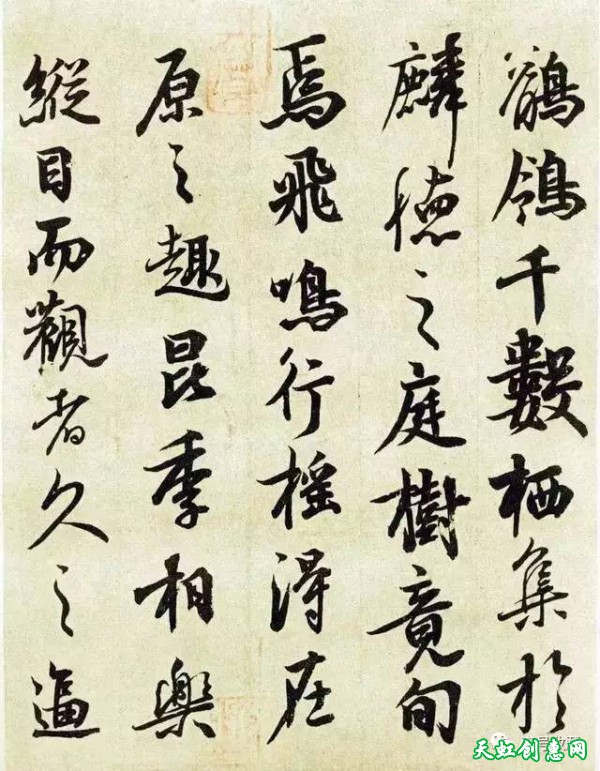 鶺鴒千數栖集於
麟德之庭樹竟旬
焉飛鳴行搖得在
原之趣昆季相樂
縱目而觀者久之逼
天虹创惠网